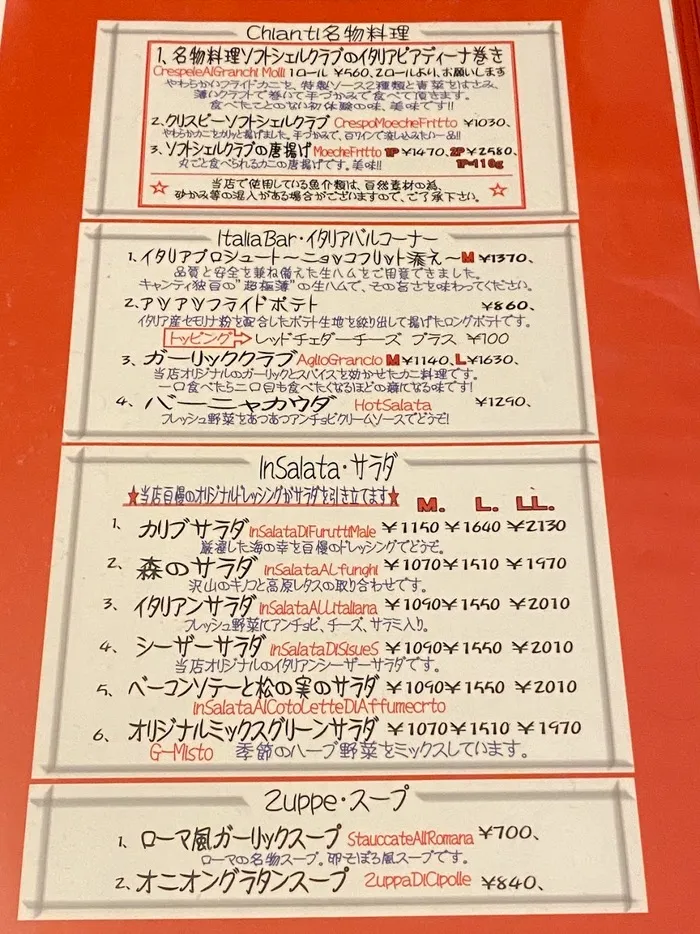 Chianti名物料理
1、名物料理ソフトシェルクラブのイタリアピアディーナ巻き
CrespeleAlGranchi Molli 1ロール ¥560、2ロールより、お願いします
やわらかいフライドカニを、特製ソース2種類と青菜をはさみ、
薄いクラフトで巻いて手づかみで食べて頂きます。
食べたことのない初体験の味、美味です!!
2.クリスピーソフトシェルクラブ CrespoMoecheFritto ¥1030、
やわらかカニをカリッと揚げました。手づかみで、白ワインで流し込みたい一品!!
3、ソフトシェルクラブの唐揚げ MoecheFritto 1P¥1470、2P¥2580、
丸ごと食べられるカニの唐揚げです。美味!! 1P=110g
☆ 当店で使用している魚介類は、自然素材の為、
砂かみ等の混入がある場合がございますので、ご了承下さい。 ☆
ItaliaBar・イタリアバルコーナー
1、イタリアプロシュート〜ニョッコフリット添え〜M ¥1370、
品質と安全を兼ね備えた生ハムをご用意できました。
キャンティ独自の"超極薄"の生ハムで、その旨さを味わってください。
2、アツアツフライドポテト ¥860、
イタリア産セモリナ粉を配合したポテト生地を絞り出して揚げたロングポテトです。
トッピング レッドチェダーチーズ プラス ¥100
3、ガーリッククラブ AglioGrancio M¥1140、L¥1630、
当店オリジナルのガーリックとスパイスを効かせたカニ料理です。
一口食べたら二口目も食べたくなるほどの癖になる味です!
4、バーニャカウダ HotSalata ¥1290、
フレッシュ野菜をあつあつアンチョビクリームソースでどうぞ!
InSalata・サラダ
★当店自慢のオリジナルドレッシングがサラダを引き立てます★ M. L. LL.
1、カリブサラダ InSalataDiFuruttiMale ¥1150 ¥1640 ¥2130
厳選した海の幸を自慢のドレッシングでどうぞ。
2、森のサラダ InSalataALfunghi ¥1070¥1510 ¥1970
沢山のキノコと高原レタスの取り合わせです。
3、イタリアンサラダ InSalataALLitaliana ¥1090¥1550 ¥2010
フレッシュ野菜にアンチョビ、チーズ、サラミ入り。
4、シーザーサラダ InSalataDiSisueS ¥1090¥1550 ¥2010
当店オリジナルのイタリアンシーザーサラダです。
5、ベーコンソテーと松の実のサラダ ¥1090¥1550 ¥2010
InSalataAlCotoLetteDiAffumecrto
6、オリジナルミックスグリーンサラダ ¥1070¥1510 ¥1970
G-Misto 季節のハーブ野菜をミックスしています。
Zuppe・スープ
1、ローマ風ガーリックスープ StauccateAllRomana ¥700、
ローマの名物スープ。卵そぼろ風スープです。
2、オニオングラタンスープ ZuppaDiCipolle ¥840、